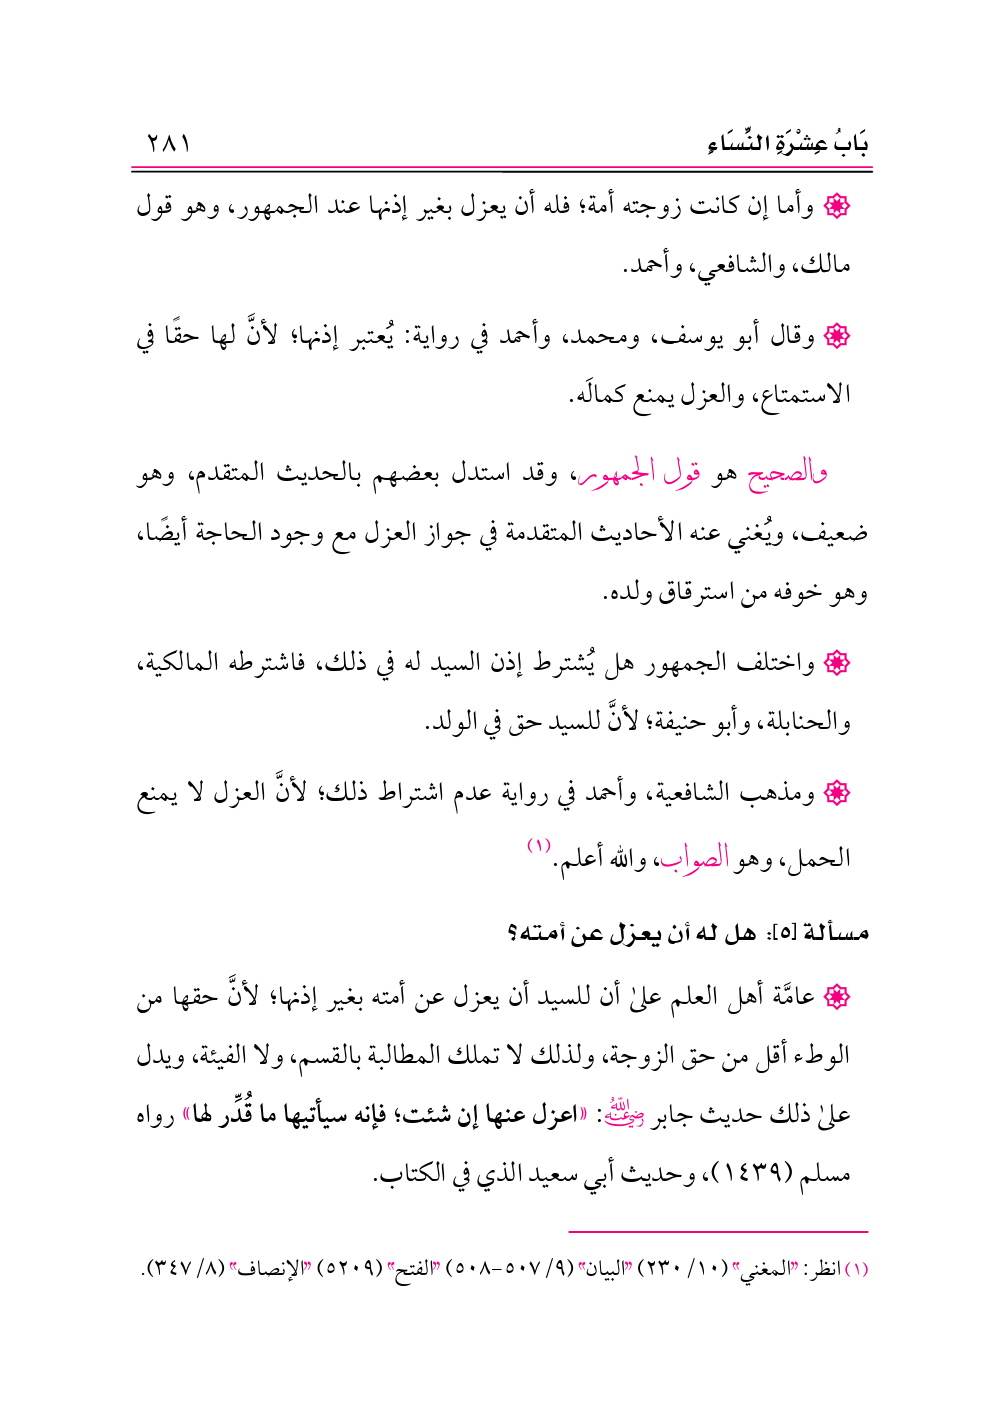 بَابُ عِشْرَةِ النِّسَاءِ ٢٨١
وأما إن كانت زوجته أمة؛ فله أن يعزل بغير إذنها عند الجمهور، وهو قول
مالك، والشافعي، وأحمد.
وقال أبو يوسف، ومحمد، وأحمد في رواية: يُعتبر إذنها؛ لأنَّ لها حقًا في
الاستمتاع، والعزل يمنع كمالَه.
والصحيح هو قول الجمهور، وقد استدل بعضهم بالحديث المتقدم، وهو
ضعيف، ويُغني عنه الأحاديث المتقدمة في جواز العزل مع وجود الحاجة أيضًا،
وهو خوفه من استرقاق ولده.
واختلف الجمهور هل يُشترط إذن السيد له في ذلك، فاشترطه المالكية،
والحنابلة، وأبو حنيفة؛ لأنَّ للسيد حق في الولد.
ومذهب الشافعية، وأحمد في رواية عدم اشتراط ذلك؛ لأنَّ العزل لا يمنع
الحمل، وهو الصواب، والله أعلم.(١)
مسألة [٥]: هل له أن يعزل عن أمته؟
عامَّة أهل العلم علىٰ أن للسيد أن يعزل عن أمته بغير إذنها؛ لأنَّ حقها من
الوطء أقل من حق الزوجة، ولذلك لا تملك المطالبة بالقسم، ولا الفيئة، ويدل
علىٰ ذلك حديث جابر رضي الله عنه: «اعزل عنها إن شئت؛ فإنه سيأتيها ما قُدِّر لها» رواه
مسلم (١٤٣٩)، وحديث أبي سعيد الذي في الكتاب.
(١) انظر: "المغني" (١٠/ ٢٣٠) "البيان" (٩/ ٥٠٧-٥٠٨) "الفتح" (٥٢٠٩) "الإنصاف" (٨/ ٣٤٧).